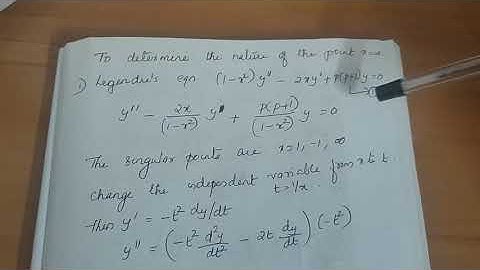 To determine the nature of the point x=∞
1) Legendre's eqn (1-x²) y'' - 2xy' + p(p+1)y=0
y'' - 2x/(1-x²) y'' + p(p+1)/(1-x²) y = 0
The singular points are x=1, -1, ∞
change the independent variable from x to t
t=1/x
Then y' = -t² dy/dt
y'' = (-t² d²y/dt² - 2t dy/dt) (-t²)